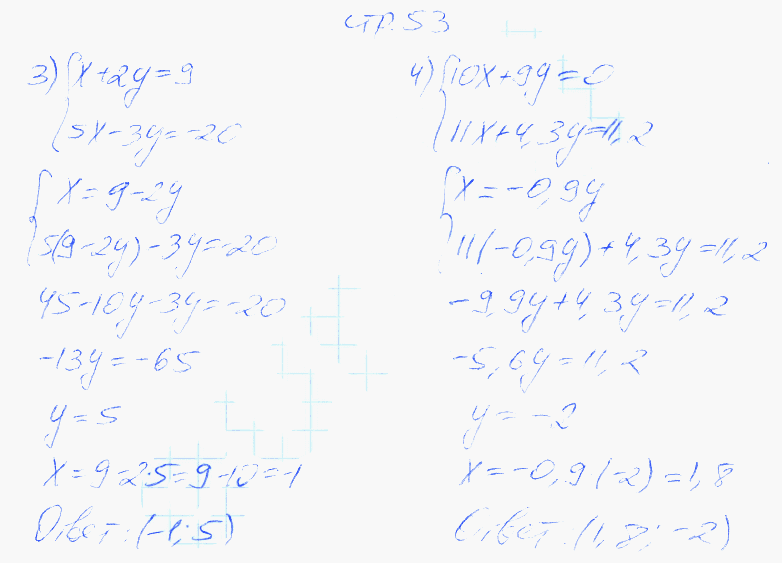 стр. 53
3) { x + 2y = 9
5x - 3y = -20
{ x = 9 - 2y
5(9 - 2y) - 3y = -20
45 - 10y - 3y = -20
-13y = -65
y = 5
x = 9 - 2·5 = 9 - 10 = -1
Ответ: (-1; 5)
4) { 10x + 9y = 0
11x + 4,3y = 11,2
{ x = -0,9y
11(-0,9y) + 4,3y = 11,2
-9,9y + 4,3y = 11,2
-5,6y = 11,2
y = -2
x = -0,9(-2) = 1,8
Ответ: (1,8; -2)